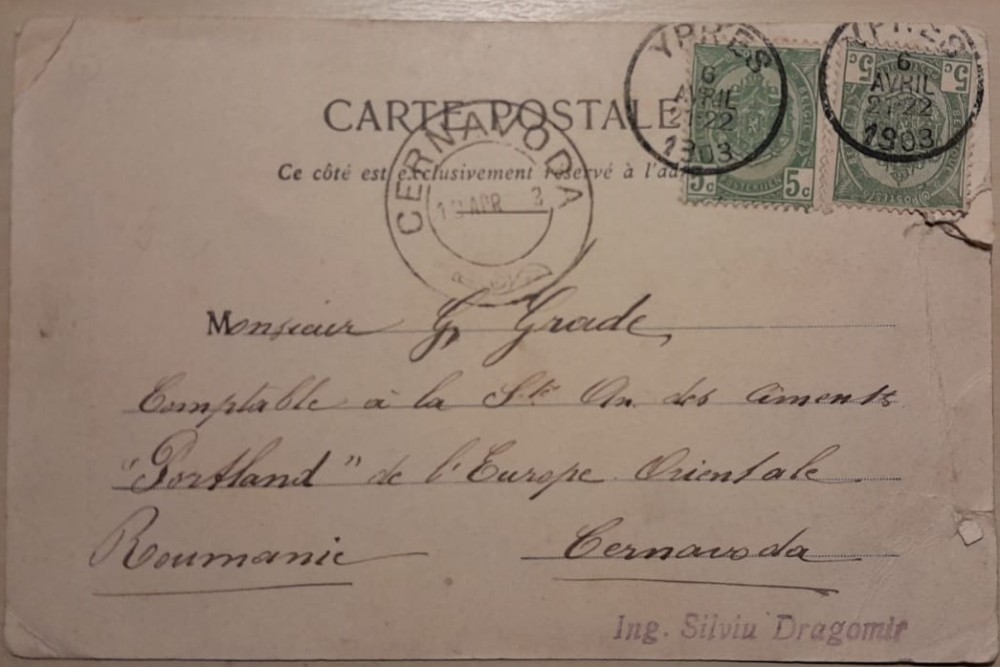 YPRES
6
AVRIL
21-22
1903
YPRES
6
AVRIL
21-22
1903
5c 5c
5c 5c
CARTE POSTALE
Ce côté est exclusivement réservé à l'ad
CERNAVODA
APR 3
Monsieur G. Grade,
Comptable à la Sté. An. des ciments
"Portland" de l'Europe Orientale
Roumanie Cernavoda
Ing. Silviu Dragomir